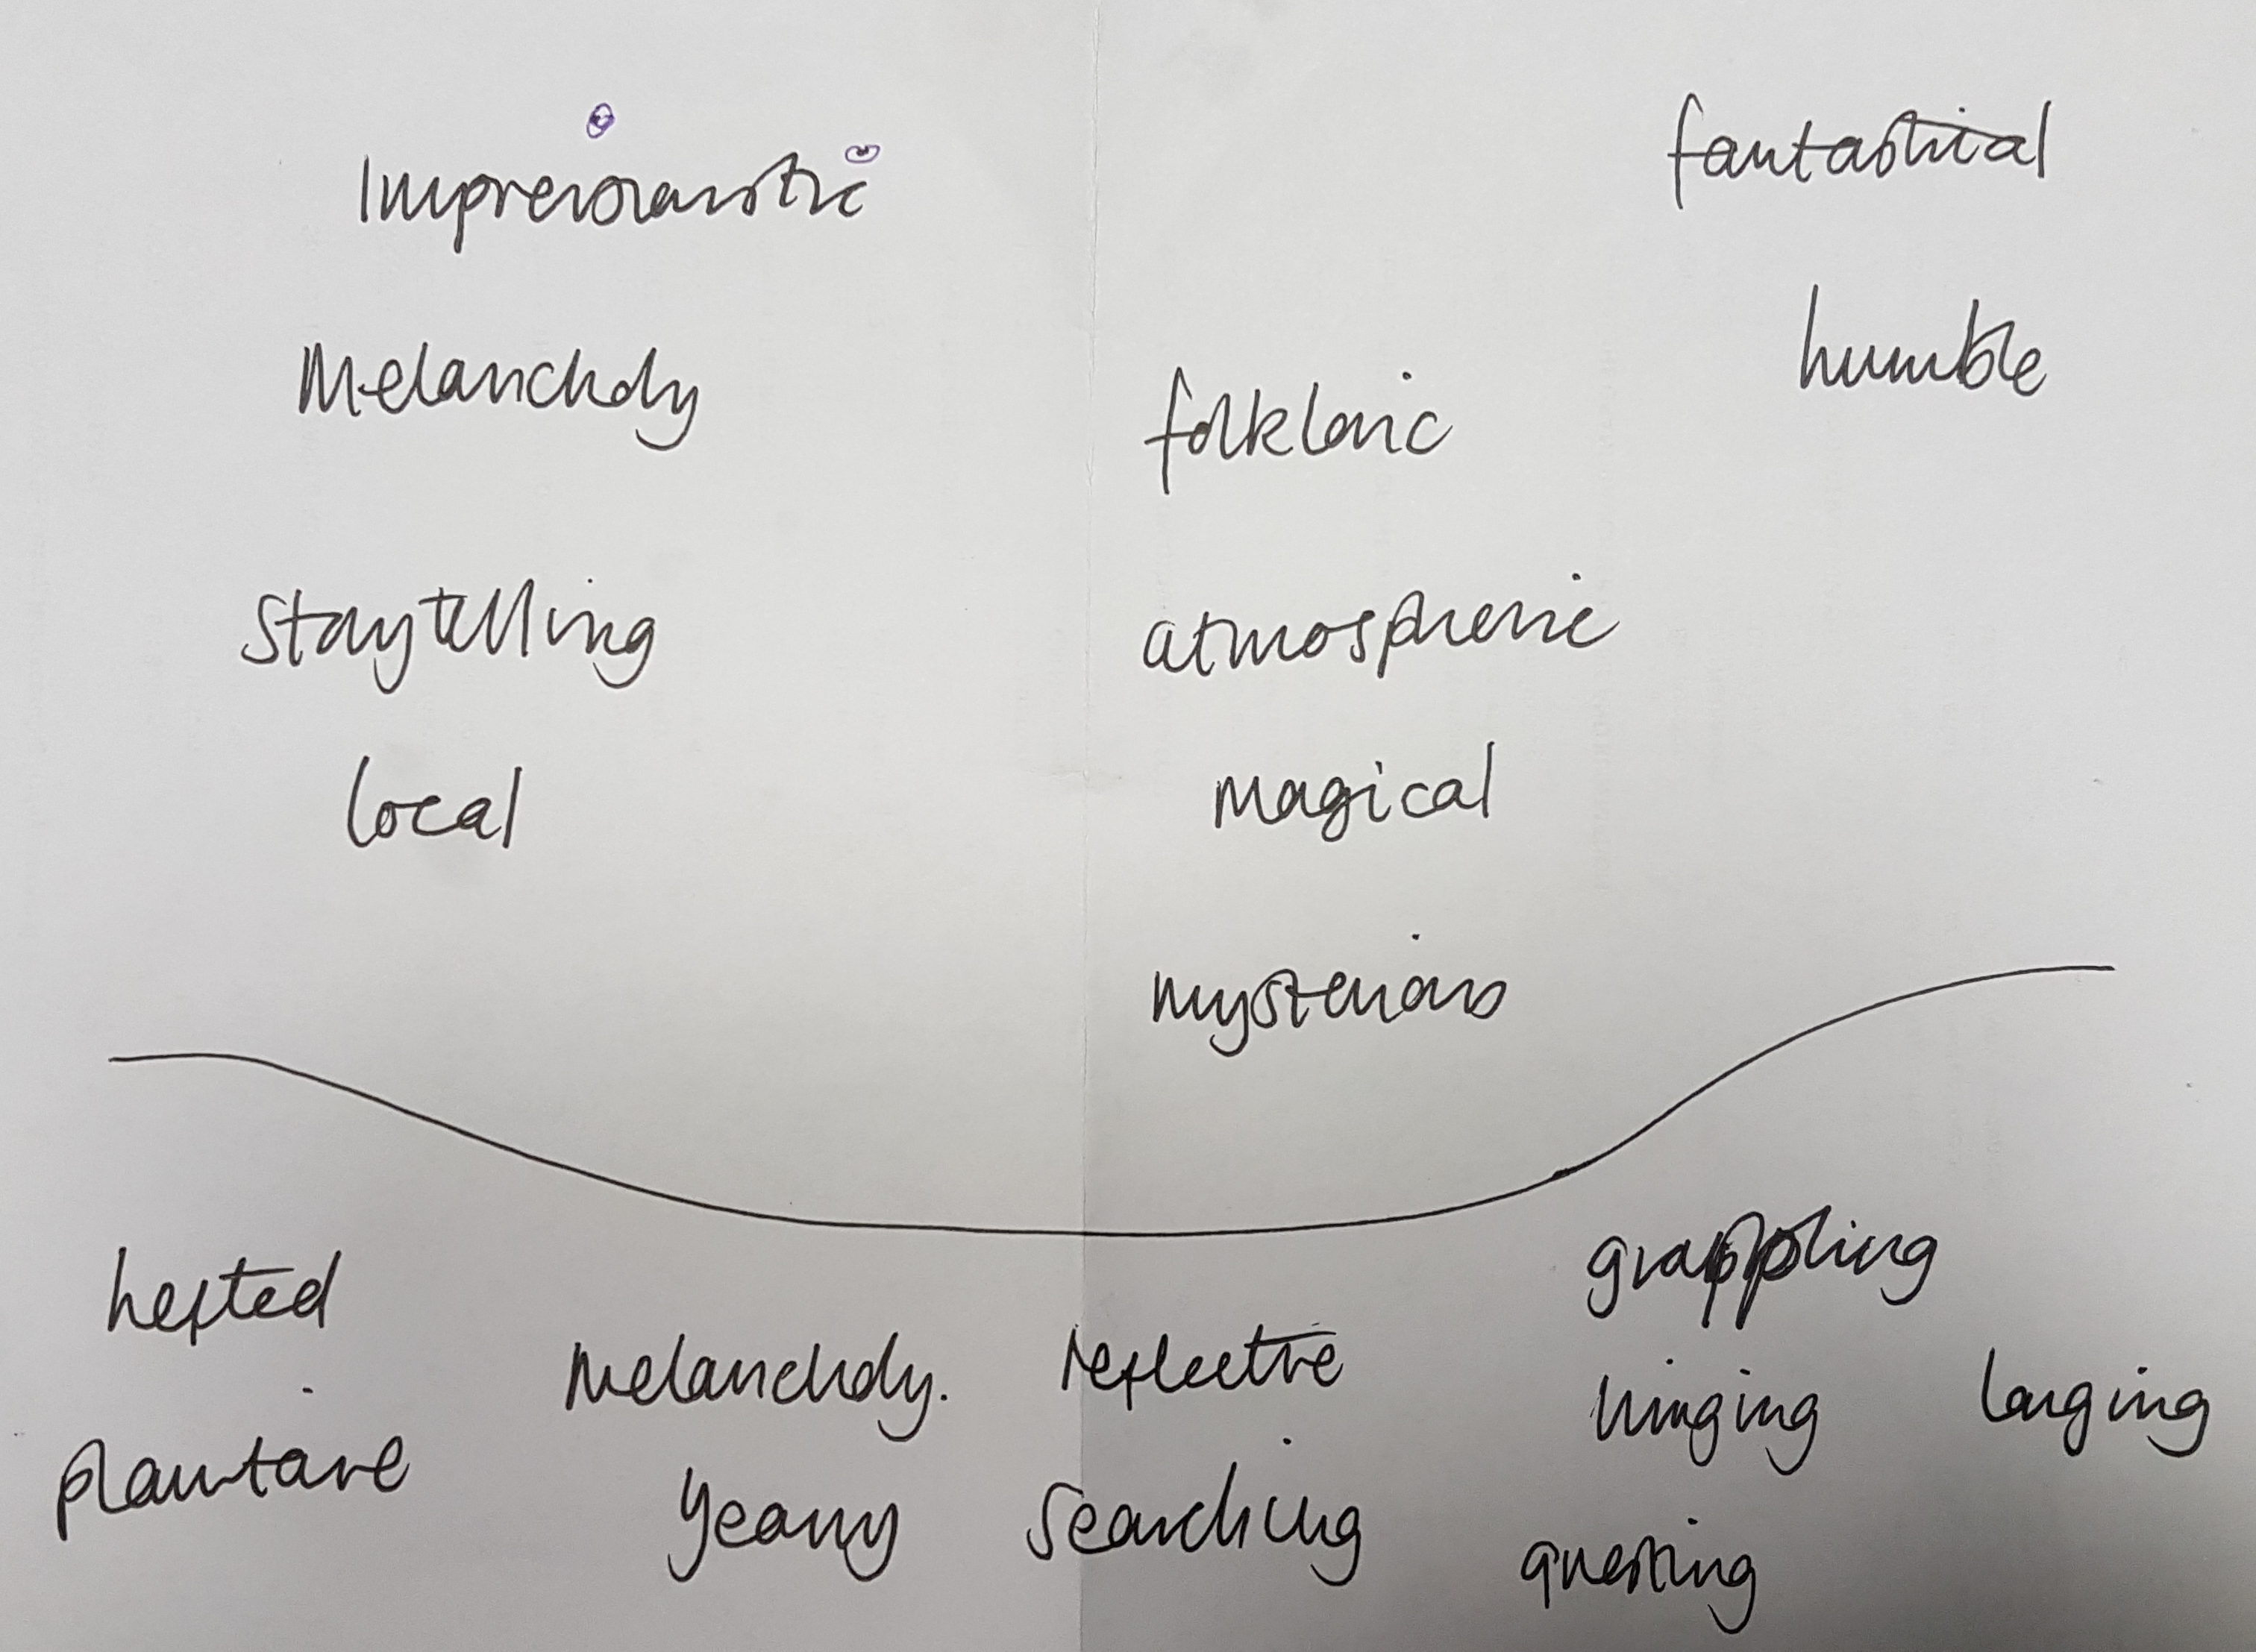 Impressionistic
fantastical
humble
Melancholy
folkloric
Storytelling
atmospheric
local
magical
mysterious
hefted
grappling
Melancholy.
reflective
longing
plaintive
yearny
Searching
questing